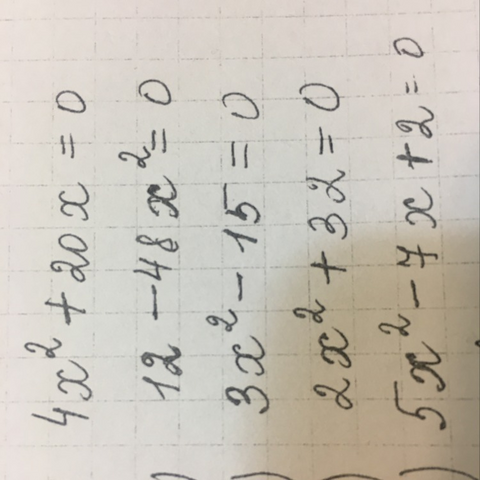 4x² + 20x = 0
12 - 48x² = 0
3x² - 15 = 0
2x² + 32 = 0
5x² - 7x + 2 = 0